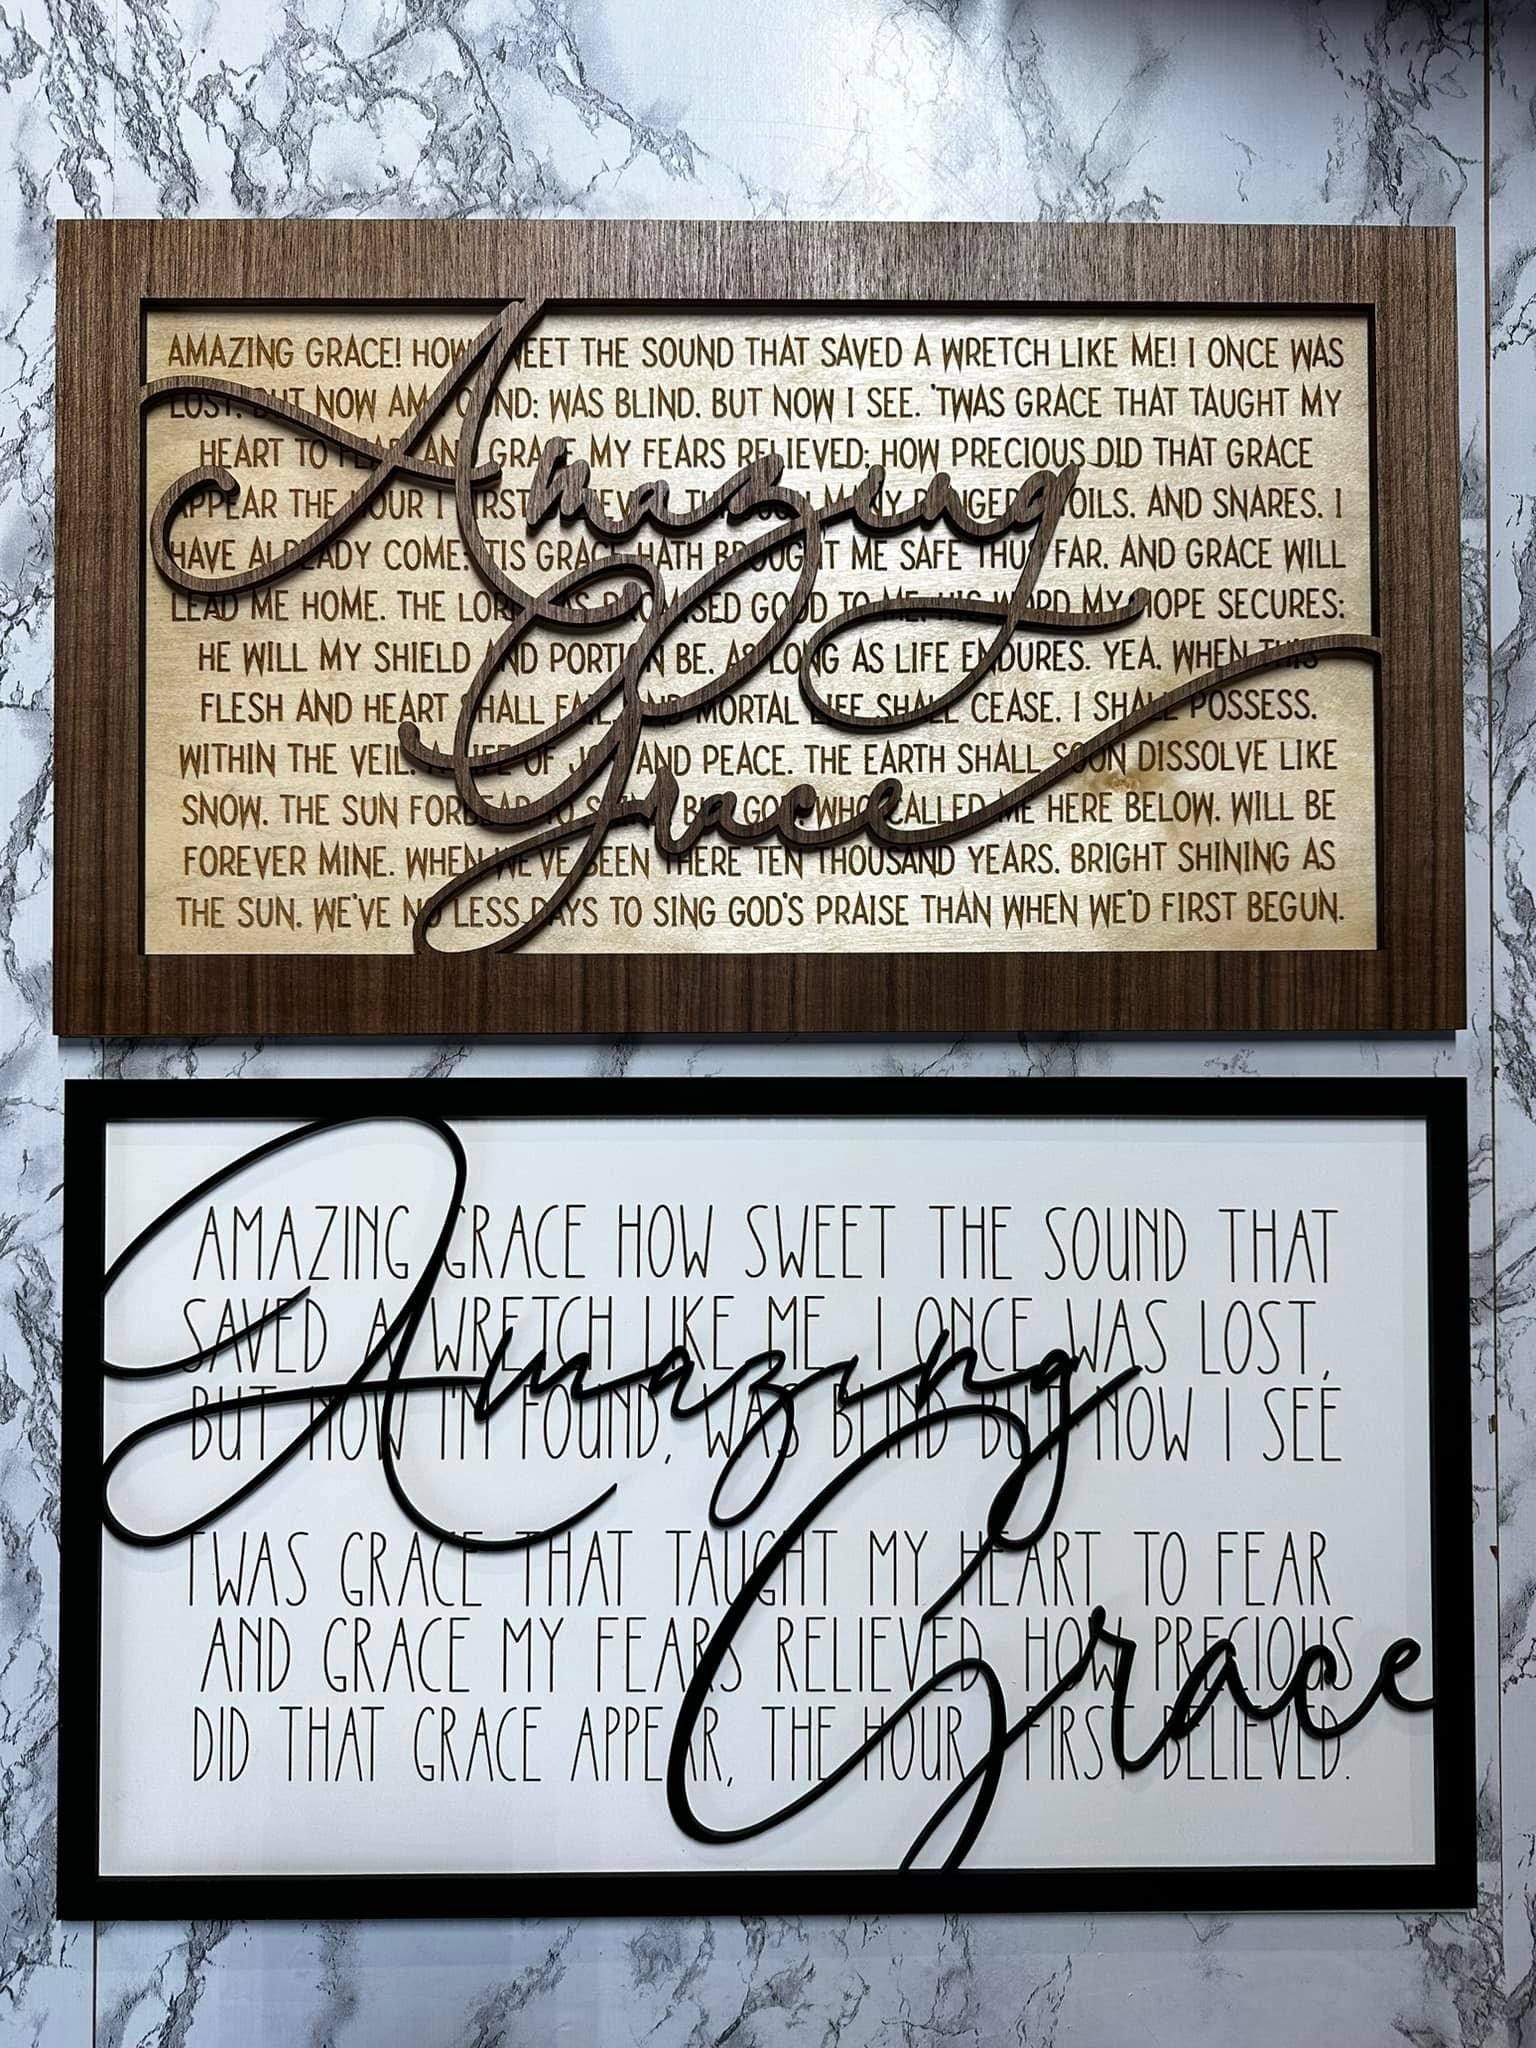 AMAZING GRACE! HOW SWEET THE SOUND THAT SAVED A WRETCH LIKE ME! I ONCE WAS
LOST, BUT NOW AM FOUND; WAS BLIND, BUT NOW I SEE. 'TWAS GRACE THAT TAUGHT MY
HEART TO FEAR, AND GRACE MY FEARS RELIEVED; HOW PRECIOUS DID THAT GRACE
APPEAR THE HOUR I FIRST BELIEVED. THROUGH MANY DANGERS, TOILS, AND SNARES, I
HAVE ALREADY COME; 'TIS GRACE HATH BROUGHT ME SAFE THUS FAR, AND GRACE WILL
LEAD ME HOME. THE LORD HAS PROMISED GOOD TO ME, HIS WORD MY HOPE SECURES;
HE WILL MY SHIELD AND PORTION BE, AS LONG AS LIFE ENDURES. YEA, WHEN THIS
FLESH AND HEART SHALL FAIL, AND MORTAL LIFE SHALL CEASE, I SHALL POSSESS,
WITHIN THE VEIL, A LIFE OF JOY AND PEACE. THE EARTH SHALL SOON DISSOLVE LIKE
SNOW, THE SUN FORBEAR TO SHINE; BUT GOD, WHO CALLED ME HERE BELOW, WILL BE
FOREVER MINE. WHEN WE'VE BEEN THERE TEN THOUSAND YEARS, BRIGHT SHINING AS
THE SUN, WE'VE NO LESS DAYS TO SING GOD'S PRAISE THAN WHEN WE'D FIRST BEGUN.
Amazing
Grace
AMAZING GRACE HOW SWEET THE SOUND THAT
SAVED A WRETCH LIKE ME I ONCE WAS LOST,
BUT NOW I'M FOUND, WAS BLIND BUT NOW I SEE
TWAS GRACE THAT TAUGHT MY HEART TO FEAR
AND GRACE MY FEARS RELIEVED HOW PRECIOUS
DID THAT GRACE APPEAR, THE HOUR I FIRST BELIEVED.
Amazing
Grace